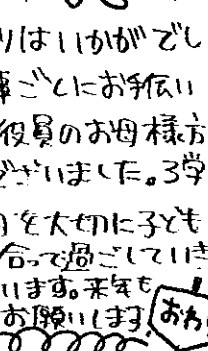 りはいかがでし
事ごとにお手伝い
役員のお母様方
ございました。3学
を大切に子ども
合って過ごしていき
います。来年も
お願いします。
おわ